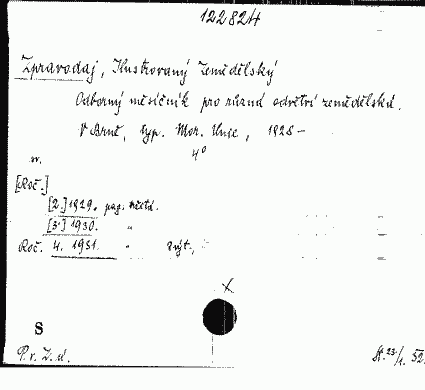 122824
Zpravodaj, Ilustrovaný Zemědělský
Odborný měsíčník pro různá odvětví zemědělská.
V Brně, typ. Mor. Unie, 1928 –
4°
[Roč.]
[2.] 1929. pag. růzd.
[3.] 1930. "
Roč. 4. 1931. "
X
S
P. v. Z. d.
St. 23/1. 52.